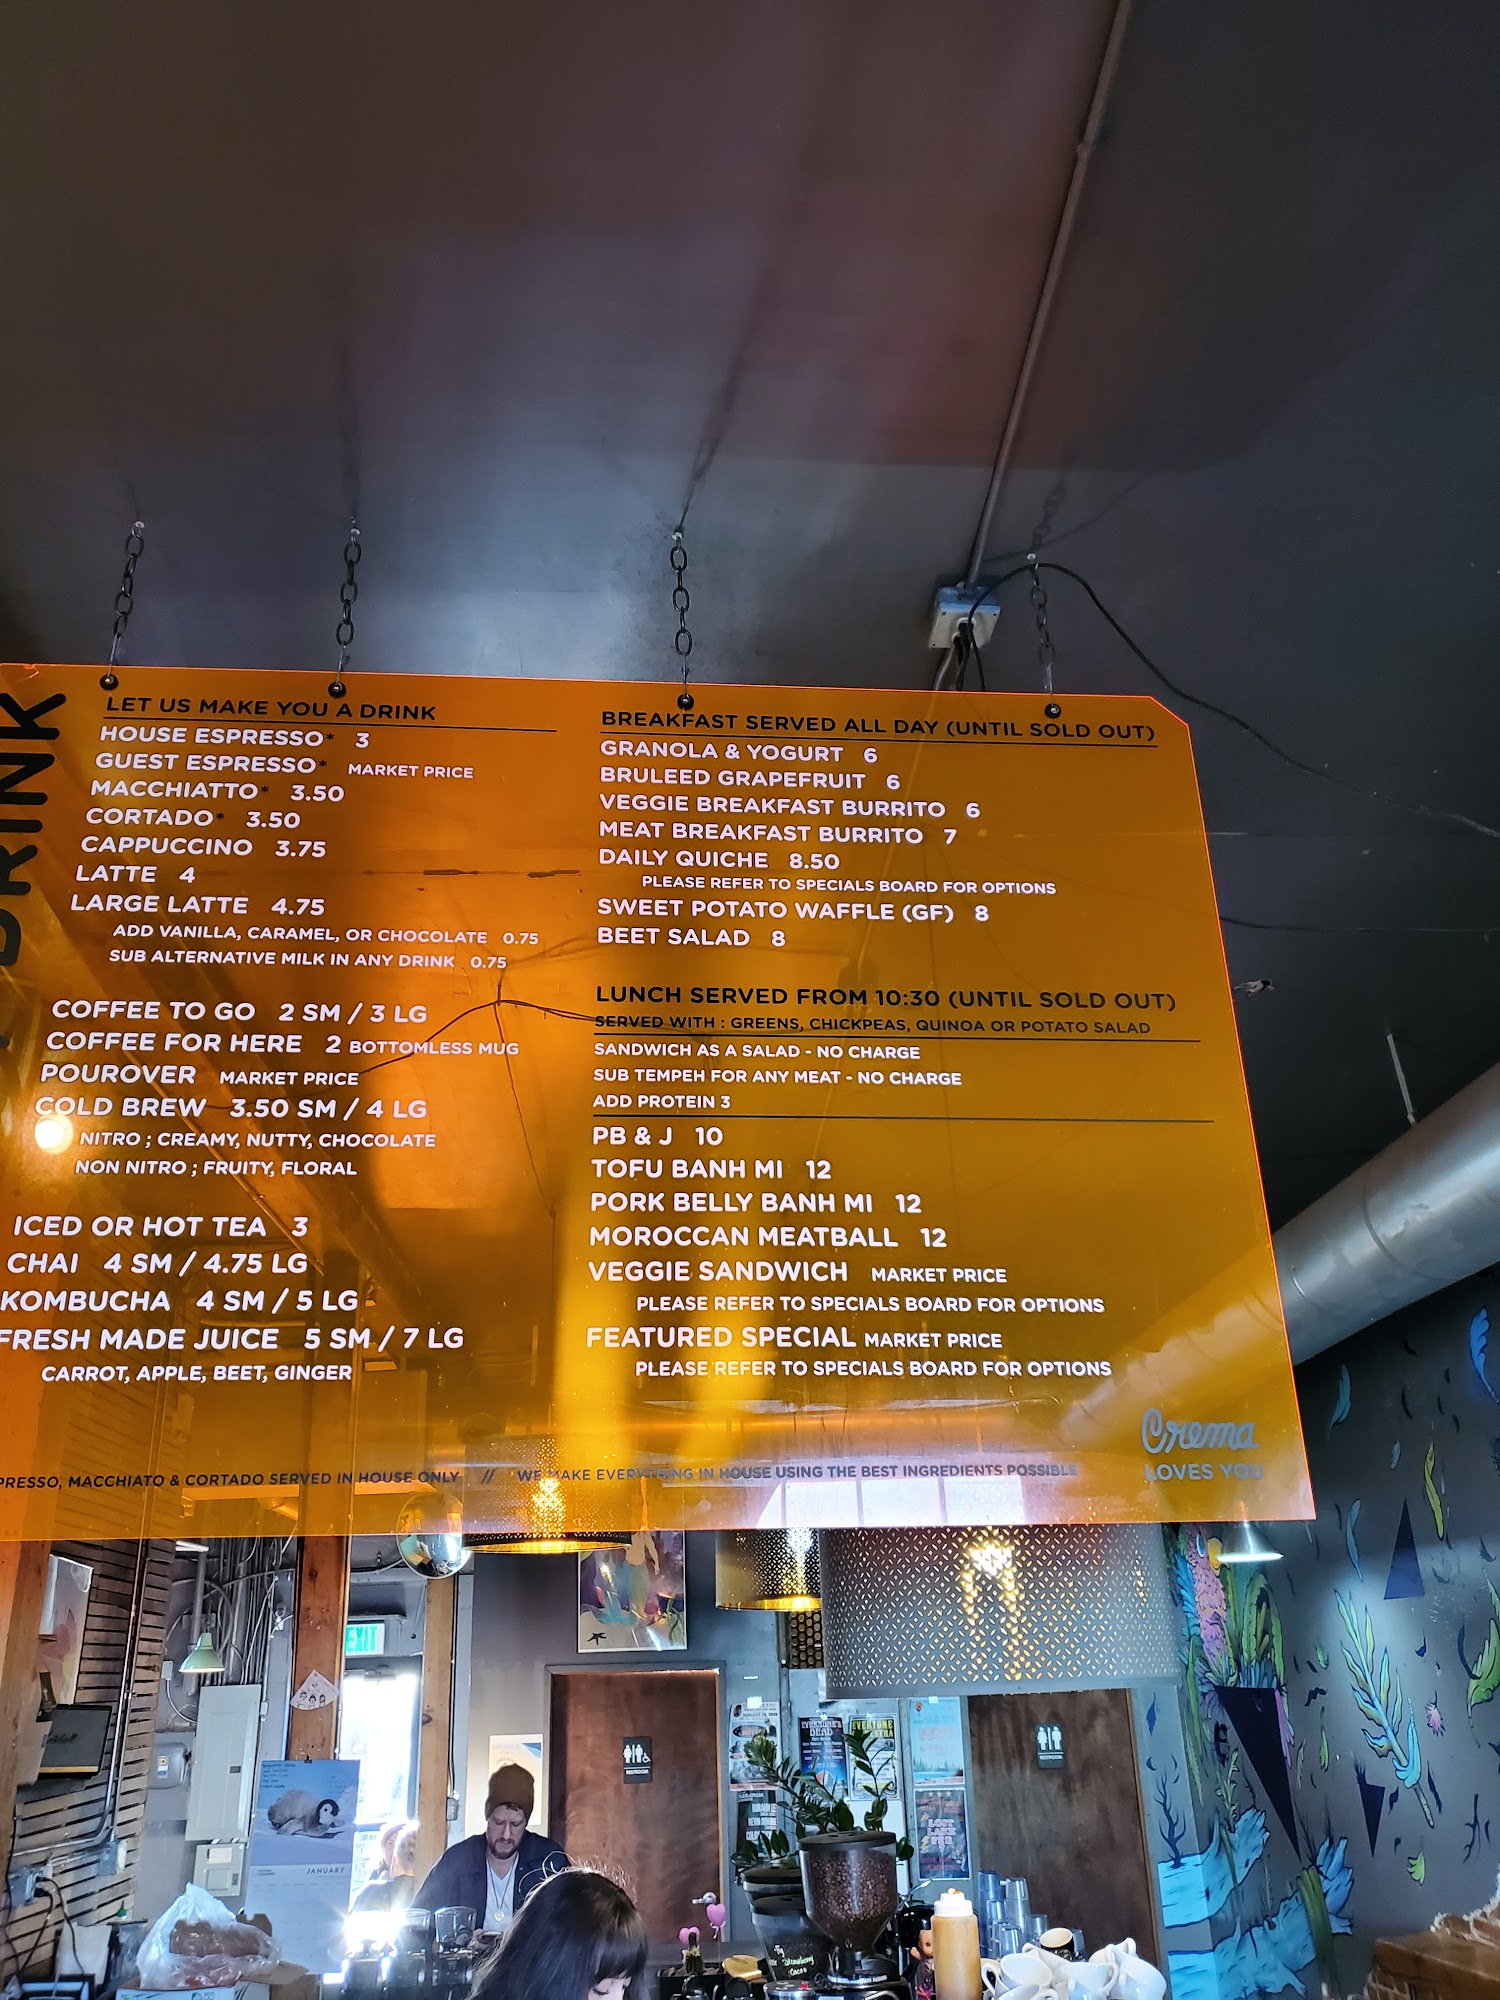 DRINK
LET US MAKE YOU A DRINK
HOUSE ESPRESSO* 3
GUEST ESPRESSO* MARKET PRICE
MACCHIATTO* 3.50
CORTADO* 3.50
CAPPUCCINO 3.75
LATTE 4
LARGE LATTE 4.75
ADD VANILLA, CARAMEL, OR CHOCOLATE 0.75
SUB ALTERNATIVE MILK IN ANY DRINK 0.75
COFFEE TO GO 2 SM / 3 LG
COFFEE FOR HERE 2 BOTTOMLESS MUG
POUROVER MARKET PRICE
COLD BREW 3.50 SM / 4 LG
NITRO ; CREAMY, NUTTY, CHOCOLATE
NON NITRO ; FRUITY, FLORAL
ICED OR HOT TEA 3
CHAI 4 SM / 4.75 LG
KOMBUCHA 4 SM / 5 LG
FRESH MADE JUICE 5 SM / 7 LG
CARROT, APPLE, BEET, GINGER
BREAKFAST SERVED ALL DAY (UNTIL SOLD OUT)
GRANOLA & YOGURT 6
BRULEED GRAPEFRUIT 6
VEGGIE BREAKFAST BURRITO 6
MEAT BREAKFAST BURRITO 7
DAILY QUICHE 8.50
PLEASE REFER TO SPECIALS BOARD FOR OPTIONS
SWEET POTATO WAFFLE (GF) 8
BEET SALAD 8
LUNCH SERVED FROM 10:30 (UNTIL SOLD OUT)
SERVED WITH : GREENS, CHICKPEAS, QUINOA OR POTATO SALAD
SANDWICH AS A SALAD - NO CHARGE
SUB TEMPEH FOR ANY MEAT - NO CHARGE
ADD PROTEIN 3
PB & J 10
TOFU BANH MI 12
PORK BELLY BANH MI 12
MOROCCAN MEATBALL 12
VEGGIE SANDWICH MARKET PRICE
PLEASE REFER TO SPECIALS BOARD FOR OPTIONS
FEATURED SPECIAL MARKET PRICE
PLEASE REFER TO SPECIALS BOARD FOR OPTIONS
Crema
LOVES YOU
PRESSO, MACCHIATO & CORTADO SERVED IN HOUSE ONLY // WE MAKE EVERYTHING IN HOUSE USING THE BEST INGREDIENTS POSSIBLE
EXIT
RESTROOM
RESTROOM
JANUARY
LOST
LAKE